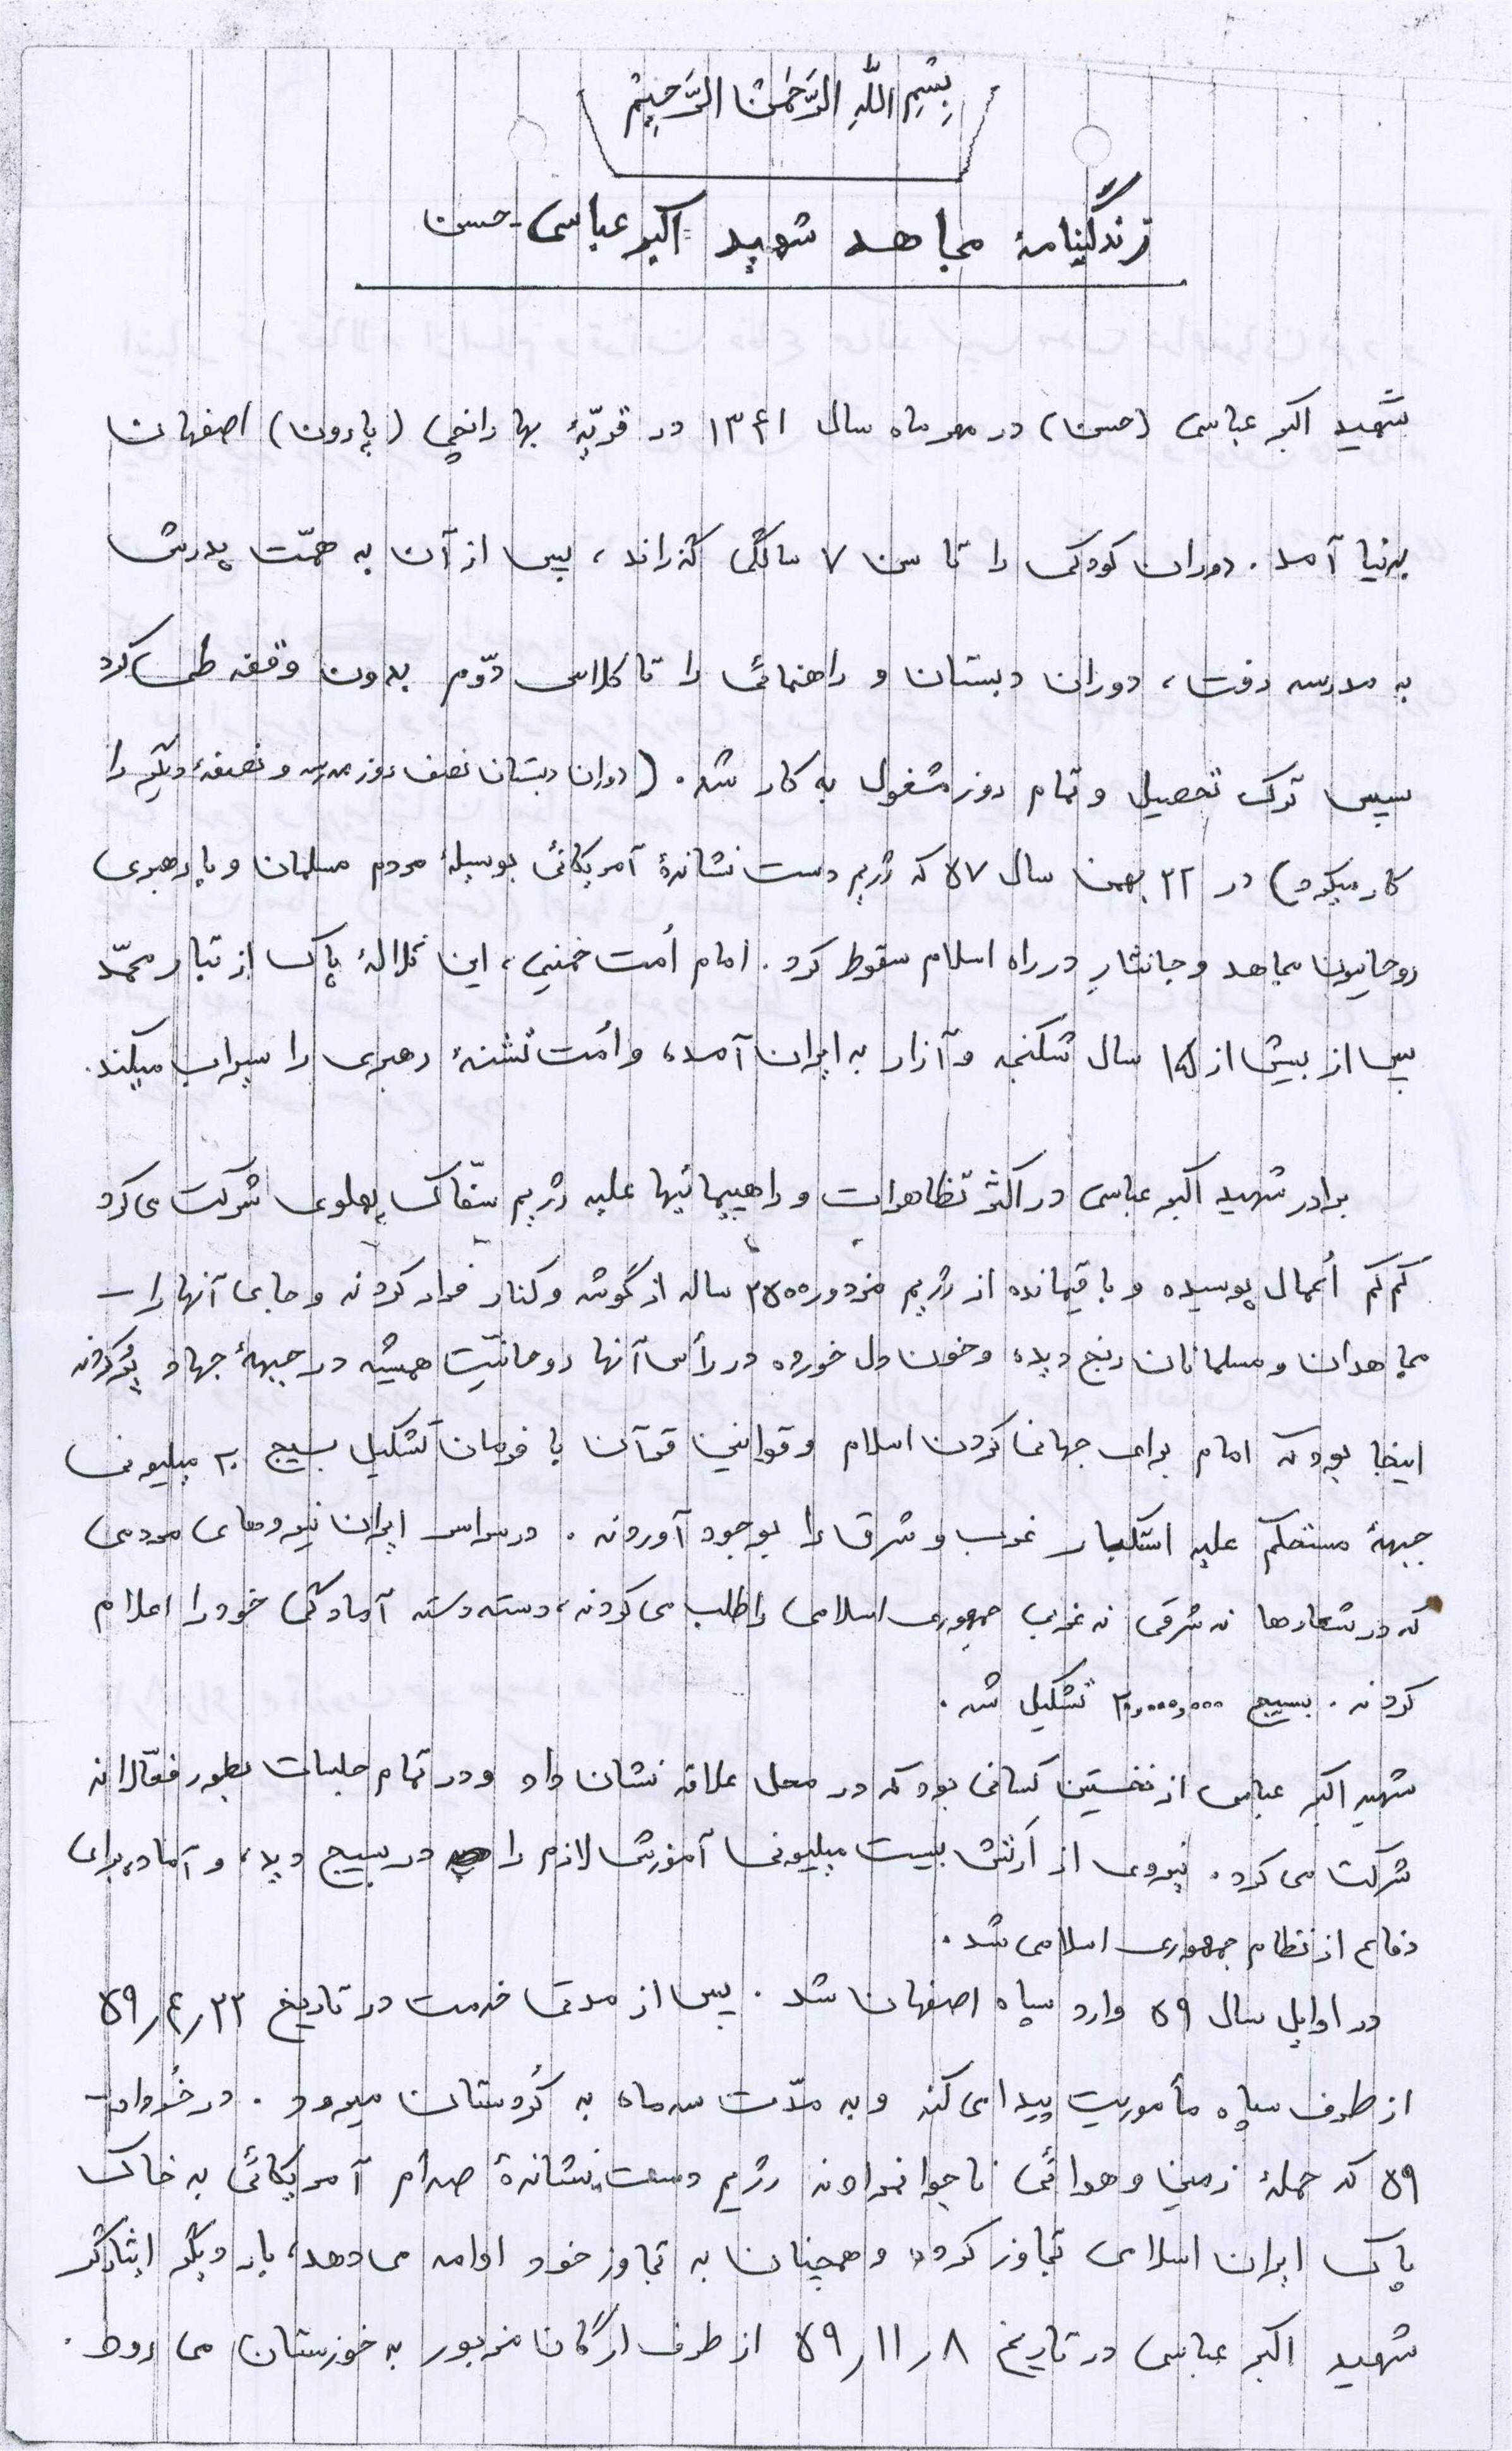 بِسْمِ اللّهِ الرَّحْمٰنِ الرَّحِیْمْ
زندگینامهٔ مجاهد شهید اکبر عباسی - حسن
شهید اکبر عباسی (حسن) در مهر ماه سال ۱۳۴۱ در قریّهٔ بهارانچی (پارون) اصفهان
بدنیا آمد. دوران کودکی را تا سن ۷ سالگی گذراند، پس از آن به همّت پدرش
به مدرسه رفت، دوران دبستان و راهنمائی را تا کلاس دوّم بدون وقفه طی کرد
سپس ترک تحصیل و تمام روز مشغول به کار شد. (دوران دبستان نصف روز مدرسه و نصفهٔ دیگر را
کار میکرد) در ۲۲ بهمن سال ۵۷ که رژیم دست نشاندهٔ آمریکائی بوسیلهٔ مردم مسلمان و با رهبری
روحانیون مجاهد و جانثار در راه اسلام سقوط کرد. امام اُمت خمینی، این سُلالهٔ پاک از تبار محمّد
پس از بیش از ۱۵ سال شکنجه و آزار به ایران آمده، و اُمت تشنهٔ رهبری را سیراب میکند.
برادر شهید اکبر عباسی در اکثر تظاهرات و راهپیمائیها علیه رژیم سفّاک پهلوی شرکت می کرد
کم کم اُعمال پوسیده و باقیمانده از رژیم مزدور ۲۵۰۰ ساله از گوشه و کنار فرار کردند و جای آنها را -
مجاهدان و مسلمانان رنج دیده و خون دل خورده در رأس آنها روحانیّت همیشه در جبههٔ جهاد پُر کردند
اینجا بود که امام برای جهانی کردن اسلام و قوانین قرآن با فرمان تشکیل بسیج ۲۰ میلیونی
جبههٔ مستحکم علیه استکبار غرب و شرق را بوجود آوردند. در سراسر ایران نیروهای مردمی
که در شعارها نه شرقی نه غربی جمهوری اسلامی را طلب می کردند، دسته دسته آمادگی خود را اعلام
کردند. بسیج ۲۰٫۰۰۰٫۰۰۰ تشکیل شد.
شهید اکبر عباسی از نخستین کسانی بود که در محل علاقه نشان داد و در تمام جلسات بطور فعّالانه
شرکت می کرد. نیروی از اَرتش بیست میلیونی آموزش لازم را در بسیج دیده، و آماده برای
دفاع از نظام جمهوری اسلامی شد.
در اوایل سال ۵۹ وارد سپاه اصفهان شد. پس از مدتی خدمت در تاریخ ۲۳ر۴ر۵۹
از طرف سپاه مأموریت پیدا می کند و به مدّت سه ماه به کُردستان میرود. در خُرداد -
۵۹ که حملهٔ زمینی و هوائی ناجوانمردانه رژیم دست نشاندهٔ صدام آمریکائی به خاک
پاک ایران اسلامی تجاوز کرده و همچنان به تجاوز خود ادامه می دهد، بار دیگر ایثارگر
شهید اکبر عباسی در تاریخ ۸ر۱۱ر۵۹ از طرف ارگان مزبور به خوزستان می رود.